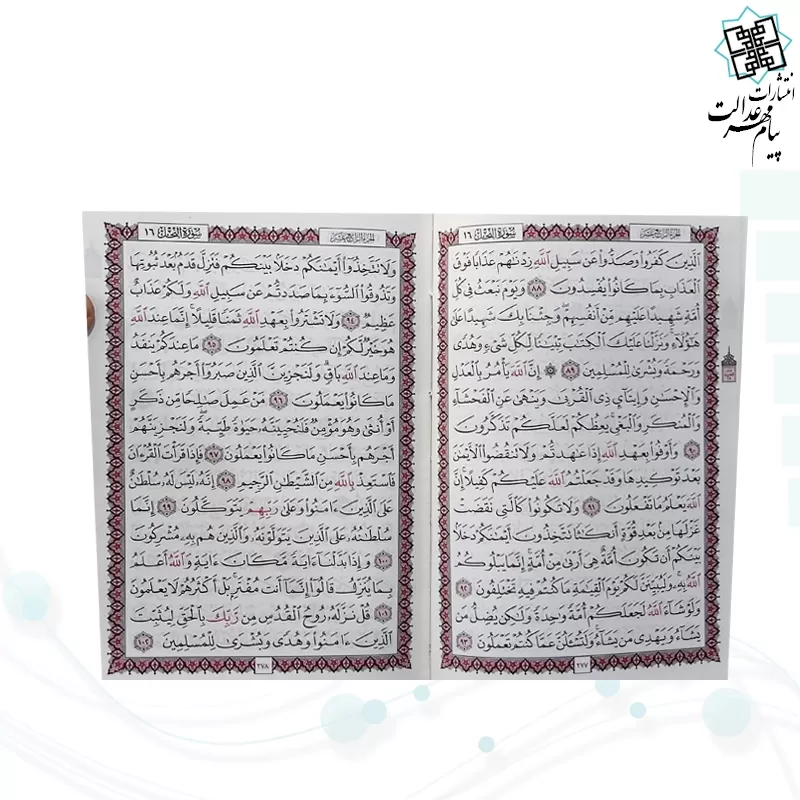 انتشارات
پیام مهر عدالت
الجزء الرابع عشر
سورة النحل ١٦
ٱلَّذِينَ كَفَرُوا۟ وَصَدُّوا۟ عَن سَبِيلِ ٱللَّهِ زِدْنَٰهُمْ عَذَابًا فَوْقَ
ٱلْعَذَابِ بِمَا كَانُوا۟ يُفْسِدُونَ ٨٨ وَيَوْمَ نَبْعَثُ فِى كُلِّ
أُمَّةٍ شَهِيدًا عَلَيْهِم مِّنْ أَنفُسِهِمْ ۖ وَجِئْنَا بِكَ شَهِيدًا عَلَىٰ
هَٰٓؤُلَآءِ ۚ وَنَزَّلْنَا عَلَيْكَ ٱلْكِتَٰبَ تِبْيَٰنًا لِّكُلِّ شَىْءٍ وَهُدًى
وَرَحْمَةً وَبُشْرَىٰ لِلْمُسْلِمِينَ ٨٩ ۞ إِنَّ ٱللَّهَ يَأْمُرُ بِٱلْعَدْلِ
وَٱلْإِحْسَٰنِ وَإِيتَآئِ ذِى ٱلْقُرْبَىٰ وَيَنْهَىٰ عَنِ ٱلْفَحْشَآءِ
وَٱلْمُنكَرِ وَٱلْبَغْىِ ۚ يَعِظُكُمْ لَعَلَّكُمْ تَذَكَّرُونَ
٩٠ وَأَوْفُوا۟ بِعَهْدِ ٱللَّهِ إِذَا عَٰهَدتُّمْ وَلَا تَنقُضُوا۟ ٱلْأَيْمَٰنَ
بَعْدَ تَوْكِيدِهَا وَقَدْ جَعَلْتُمُ ٱللَّهَ عَلَيْكُمْ كَفِيلًا ۚ إِنَّ
ٱللَّهَ يَعْلَمُ مَا تَفْعَلُونَ ٩١ وَلَا تَكُونُوا۟ كَٱلَّتِى نَقَضَتْ
غَزْلَهَا مِنۢ بَعْدِ قُوَّةٍ أَنكَٰثًا تَتَّخِذُونَ أَيْمَٰنَكُمْ دَخَلًۢا
بَيْنَكُمْ أَن تَكُونَ أُمَّةٌ هِىَ أَرْبَىٰ مِنْ أُمَّةٍ ۚ إِنَّمَا يَبْلُوكُمُ
ٱللَّهُ بِهِۦ ۚ وَلَيُبَيِّنَنَّ لَكُمْ يَوْمَ ٱلْقِيَٰمَةِ مَا كُنتُمْ فِيهِ تَخْتَلِفُونَ ٩٢
وَلَوْ شَآءَ ٱللَّهُ لَجَعَلَكُمْ أُمَّةً وَٰحِدَةً وَلَٰكِن يُضِلُّ مَن
يَشَآءُ وَيَهْدِى مَن يَشَآءُ ۚ وَلَتُسْـَٔلُنَّ عَمَّا كُنتُمْ تَعْمَلُونَ ٩٣
٢٧٧
الجزء الرابع عشر
سورة النحل ١٦
وَلَا تَتَّخِذُوٓا۟ أَيْمَٰنَكُمْ دَخَلًۢا بَيْنَكُمْ فَتَزِلَّ قَدَمٌۢ بَعْدَ ثُبُوتِهَا
وَتَذُوقُوا۟ ٱلسُّوٓءَ بِمَا صَدَدتُّمْ عَن سَبِيلِ ٱللَّهِ ۖ وَلَكُمْ عَذَابٌ
عَظِيمٌ ٩٤ وَلَا تَشْتَرُوا۟ بِعَهْدِ ٱللَّهِ ثَمَنًا قَلِيلًا ۚ إِنَّمَا عِندَ ٱللَّهِ
هُوَ خَيْرٌ لَّكُمْ إِن كُنتُمْ تَعْلَمُونَ ٩٥ مَا عِندَكُمْ يَنفَدُ ۖ
وَمَا عِندَ ٱللَّهِ بَاقٍ ۗ وَلَنَجْزِيَنَّ ٱلَّذِينَ صَبَرُوٓا۟ أَجْرَهُم بِأَحْسَنِ
مَا كَانُوا۟ يَعْمَلُونَ ٩٦ مَنْ عَمِلَ صَٰلِحًا مِّن ذَكَرٍ
أَوْ أُنثَىٰ وَهُوَ مُؤْمِنٌ فَلَنُحْيِيَنَّهُۥ حَيَوٰةً طَيِّبَةً ۖ وَلَنَجْزِيَنَّهُمْ
أَجْرَهُم بِأَحْسَنِ مَا كَانُوا۟ يَعْمَلُونَ ٩٧ فَإِذَا قَرَأْتَ ٱلْقُرْءَانَ
فَٱسْتَعِذْ بِٱللَّهِ مِنَ ٱلشَّيْطَٰنِ ٱلرَّجِيمِ ٩٨ إِنَّهُۥ لَيْسَ لَهُۥ سُلْطَٰنٌ
عَلَى ٱلَّذِينَ ءَامَنُوا۟ وَعَلَىٰ رَبِّهِمْ يَتَوَكَّلُونَ ٩٩ إِنَّمَا
سُلْطَٰنُهُۥ عَلَى ٱلَّذِينَ يَتَوَلَّوْنَهُۥ وَٱلَّذِينَ هُم بِهِۦ مُشْرِكُونَ
١٠٠ وَإِذَا بَدَّلْنَآ ءَايَةً مَّكَانَ ءَايَةٍ ۙ وَٱللَّهُ أَعْلَمُ
بِمَا يُنَزِّلُ قَالُوٓا۟ إِنَّمَآ أَنتَ مُفْتَرٍۭ ۚ بَلْ أَكْثَرُهُمْ لَا يَعْلَمُونَ
١٠١ قُلْ نَزَّلَهُۥ رُوحُ ٱلْقُدُسِ مِن رَّبِّكَ بِٱلْحَقِّ لِيُثَبِّتَ
ٱلَّذِينَ ءَامَنُوا۟ وَهُدًى وَبُشْرَىٰ لِلْمُسْلِمِينَ ١٠٢
٢٧٨